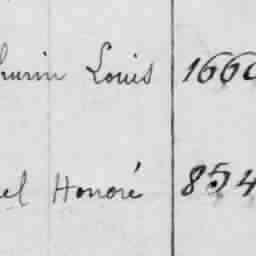 hurin Louis 1660
el Honoré 854